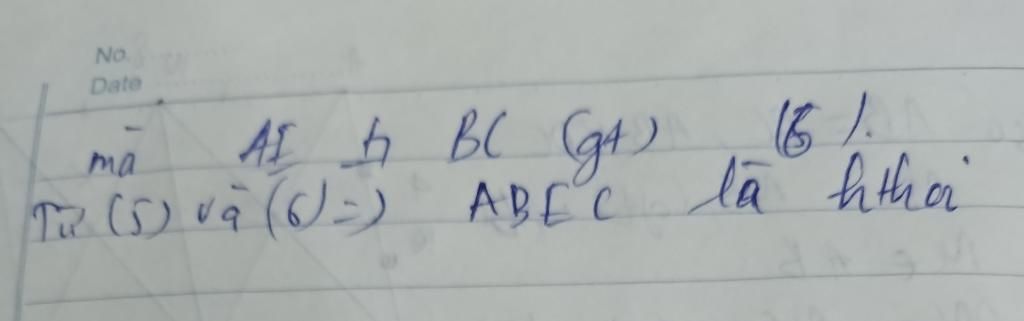 No.
Date
mà AI ⊥ BC (gt) (6).
Từ (5) và (6) =) ABEC là hthoi